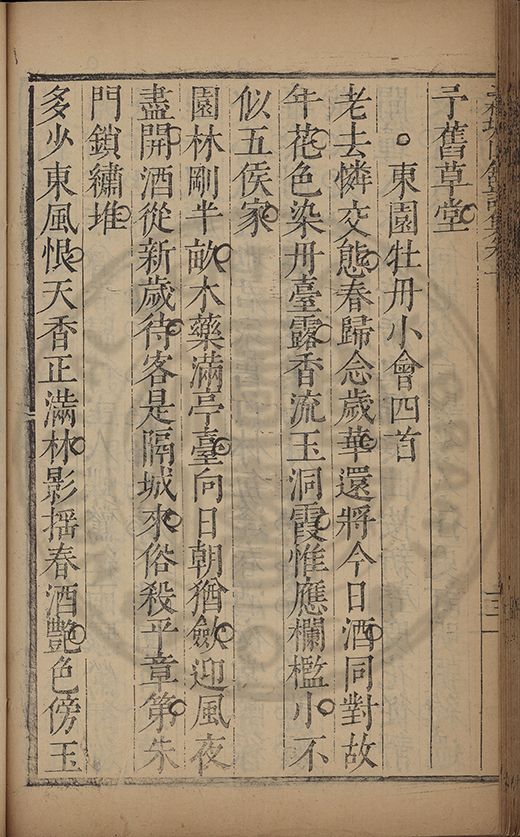 亍舊草堂
東園牡丹小會四首
老去憐交態春歸念歲華還將今日酒同對故
年花色染丹臺露香流玉洞霞惟應欄檻小不
似五侯家
園林剛半畝木藥滿亭臺向日朝猶斂迎風夜
盡開酒從新歲待客是隔城來俗殺平章第朱
門鎖繡堆
多少東風恨天香正滿林影搖春酒艷色傍玉